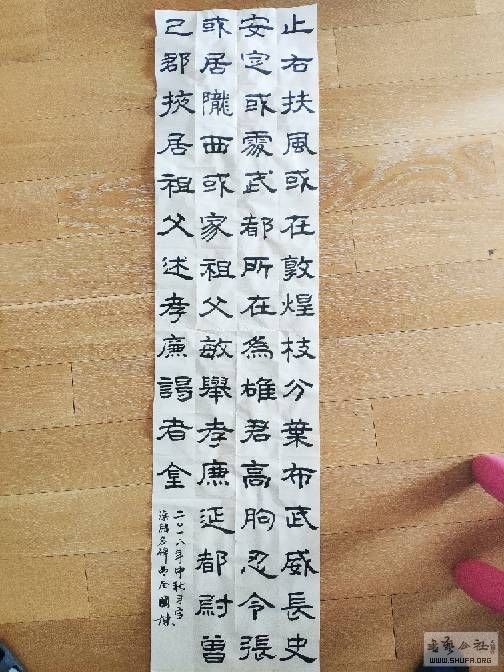 止右扶風或在敦煌枝分葉布武威長史
安定或處武都所在為雄君高朐忍令張
或居隴西或家祖父敏舉孝廉延都尉曾
己郡掖居祖父述孝廉謁者金
二〇一八年中秋
书艺公社
WWW.SHUFA.ORG